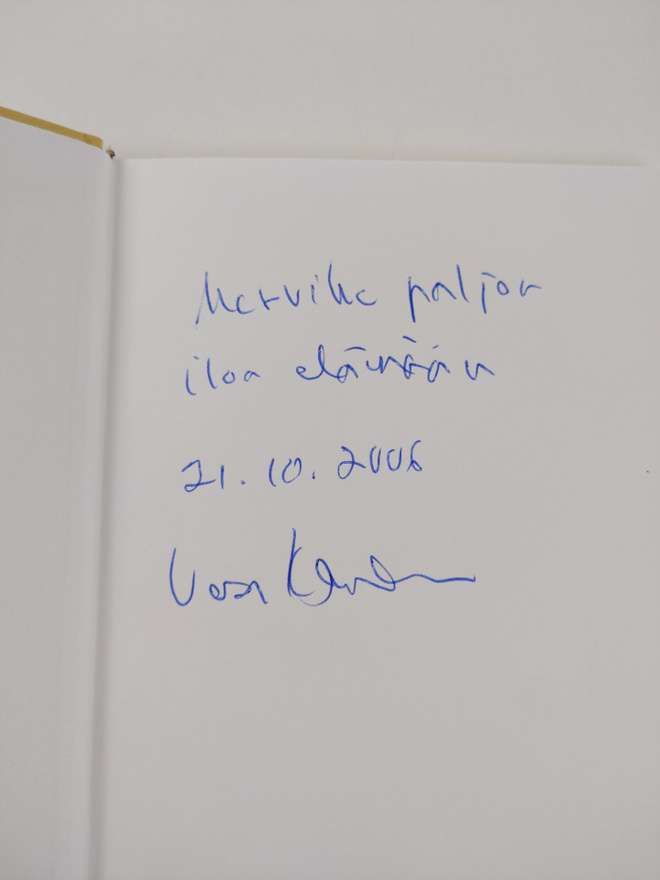 Merville paljon
iloa elämään
21.10.2006
Vesa